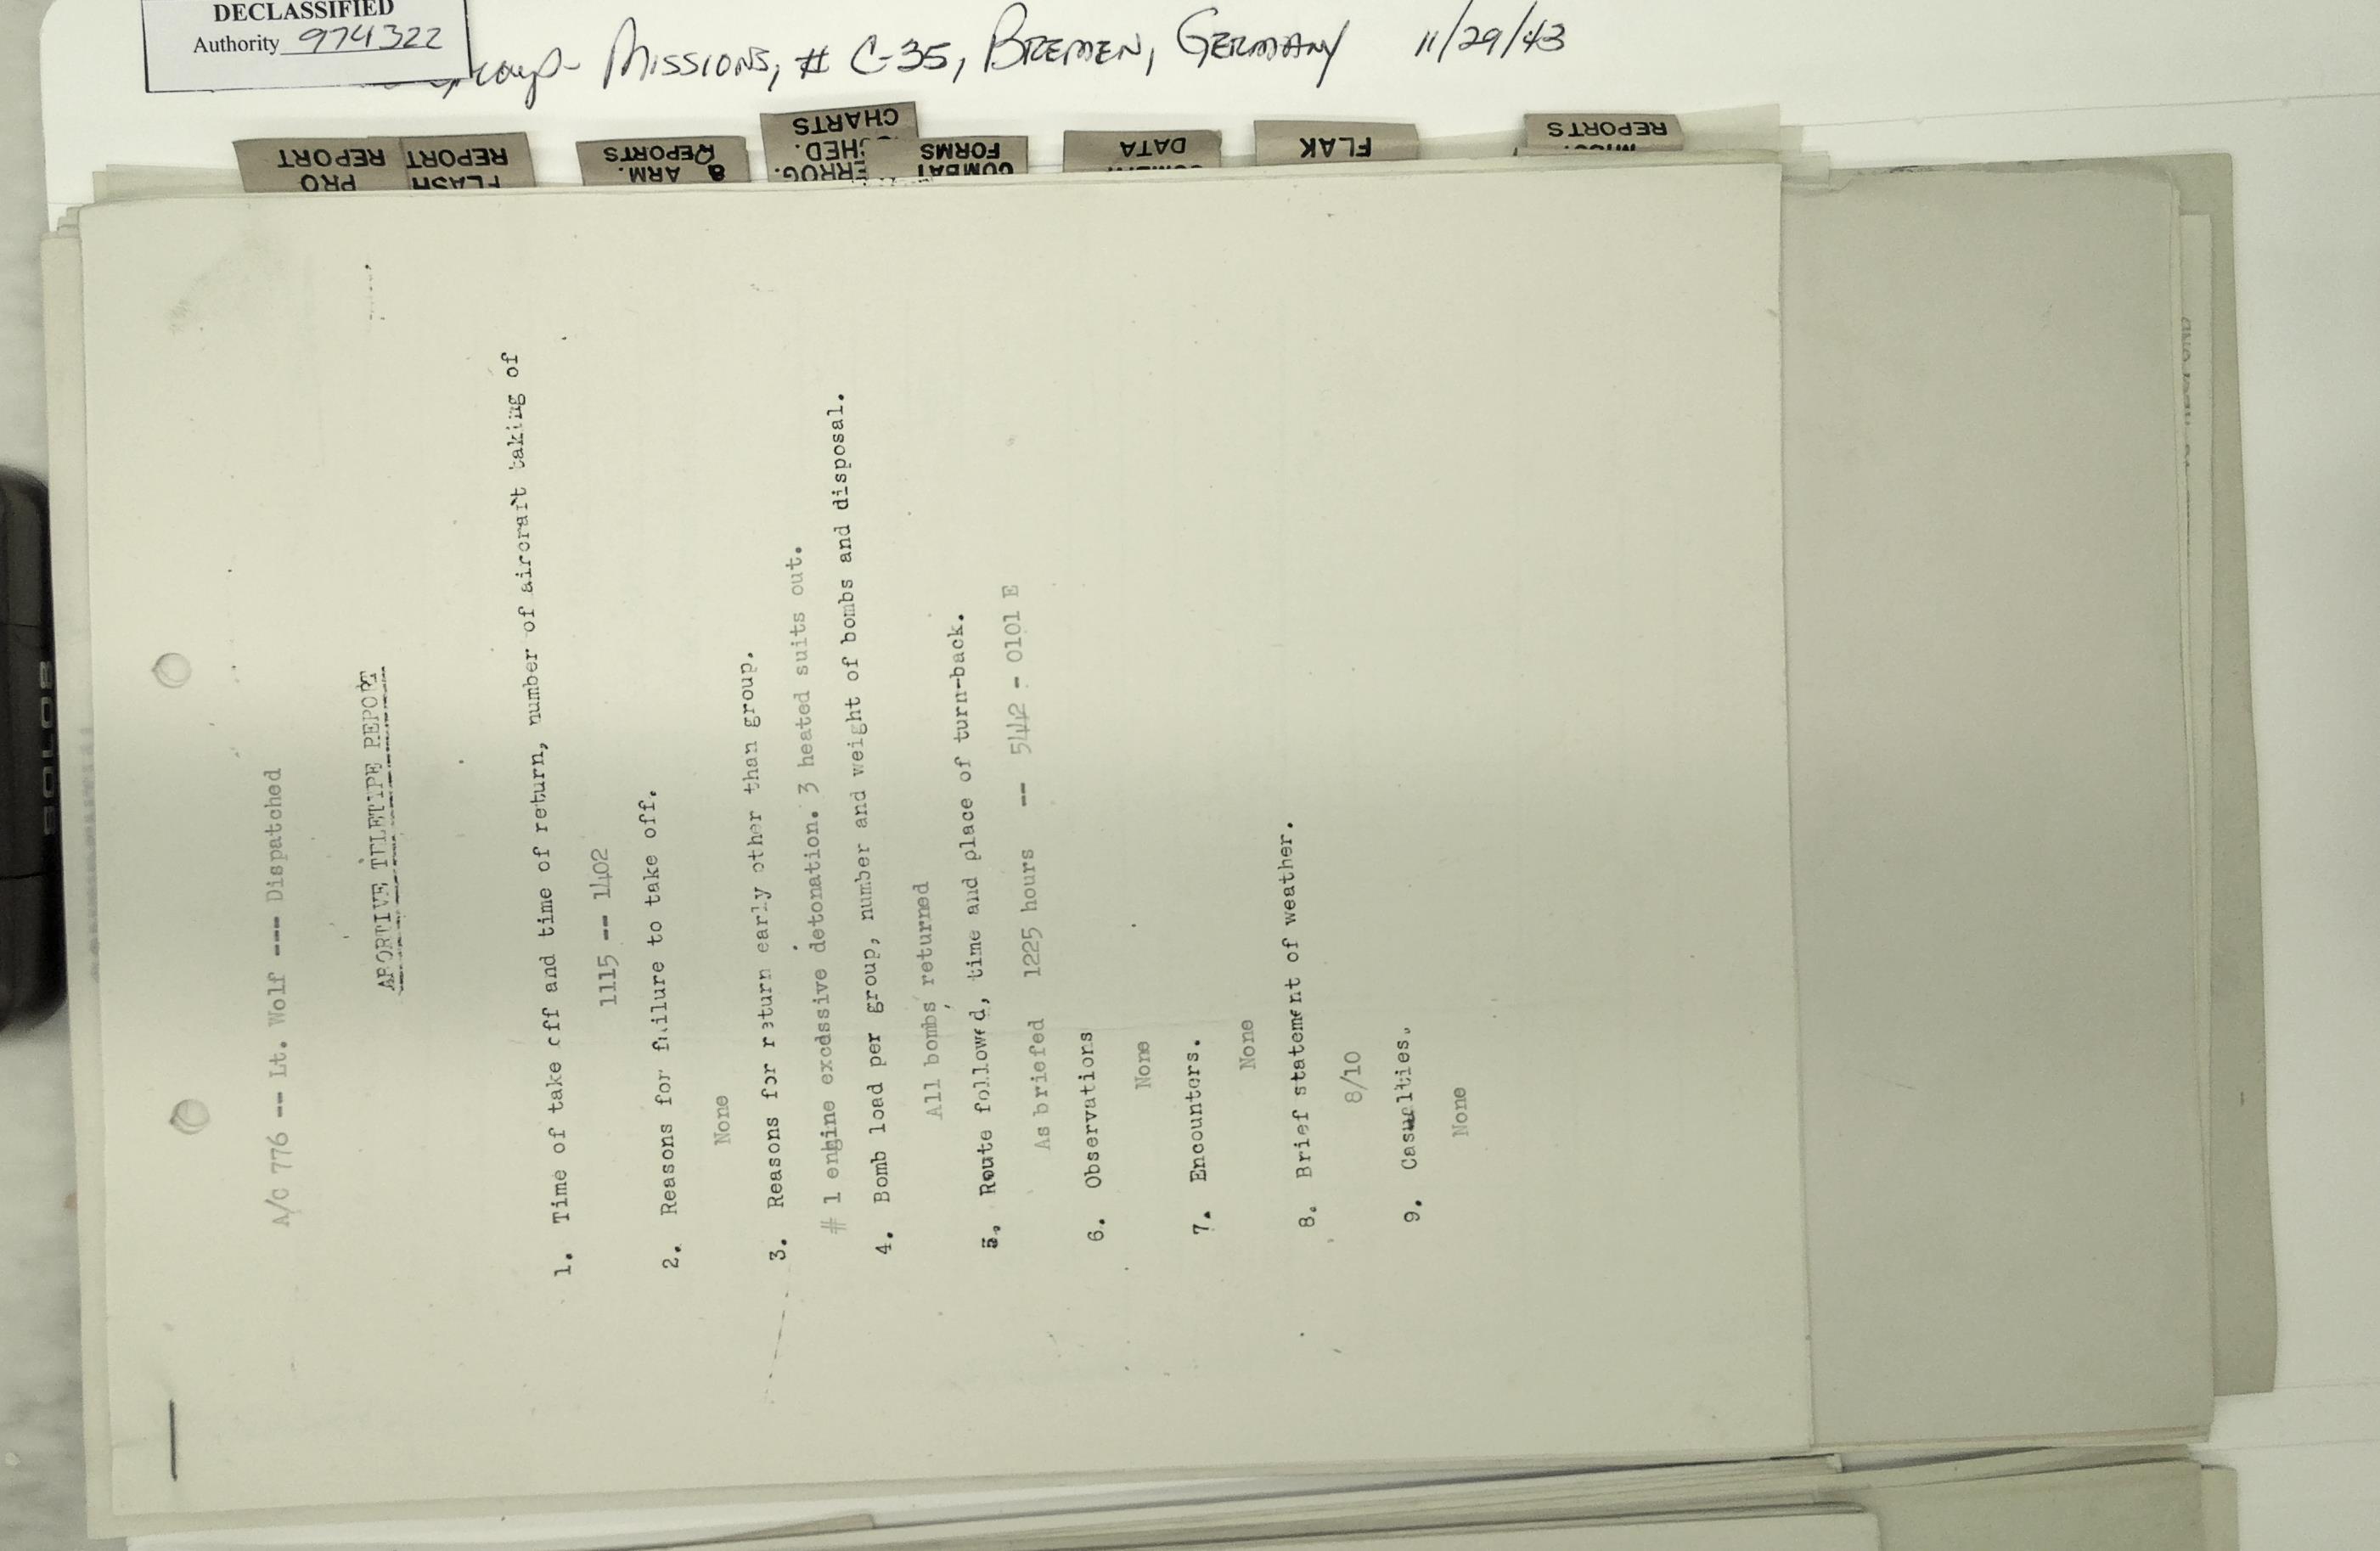 DECLASSIFIED
Authority 974322
Missions, # C-35, Bremen, Germany 11/29/43
PRO
REPORT
FLASH
REPORT
ARM.
& REPORTS
CHARTS
COMBAT
FORMS
DATA
FLAK
REPORTS
A/C 776 -- Lt. Wolf --- Dispatched
ABORTIVE TELETYPE REPORT
1. Time of take off and time of return, number of aircraft taking of
1115 -- 1402
2. Reasons for failure to take off.
None
3. Reasons for return early other than group.
# 1 engine excdssive detonation. 3 heated suits out.
4. Bomb load per group, number and weight of bombs and disposal.
All bombs returned
5. Route followed, time and place of turn-back.
As briefed 1225 hours -- 5442 - 0101 E
6. Observations
None
7. Encounters.
None
8. Brief statement of weather.
8/10
9. Casualties.
None